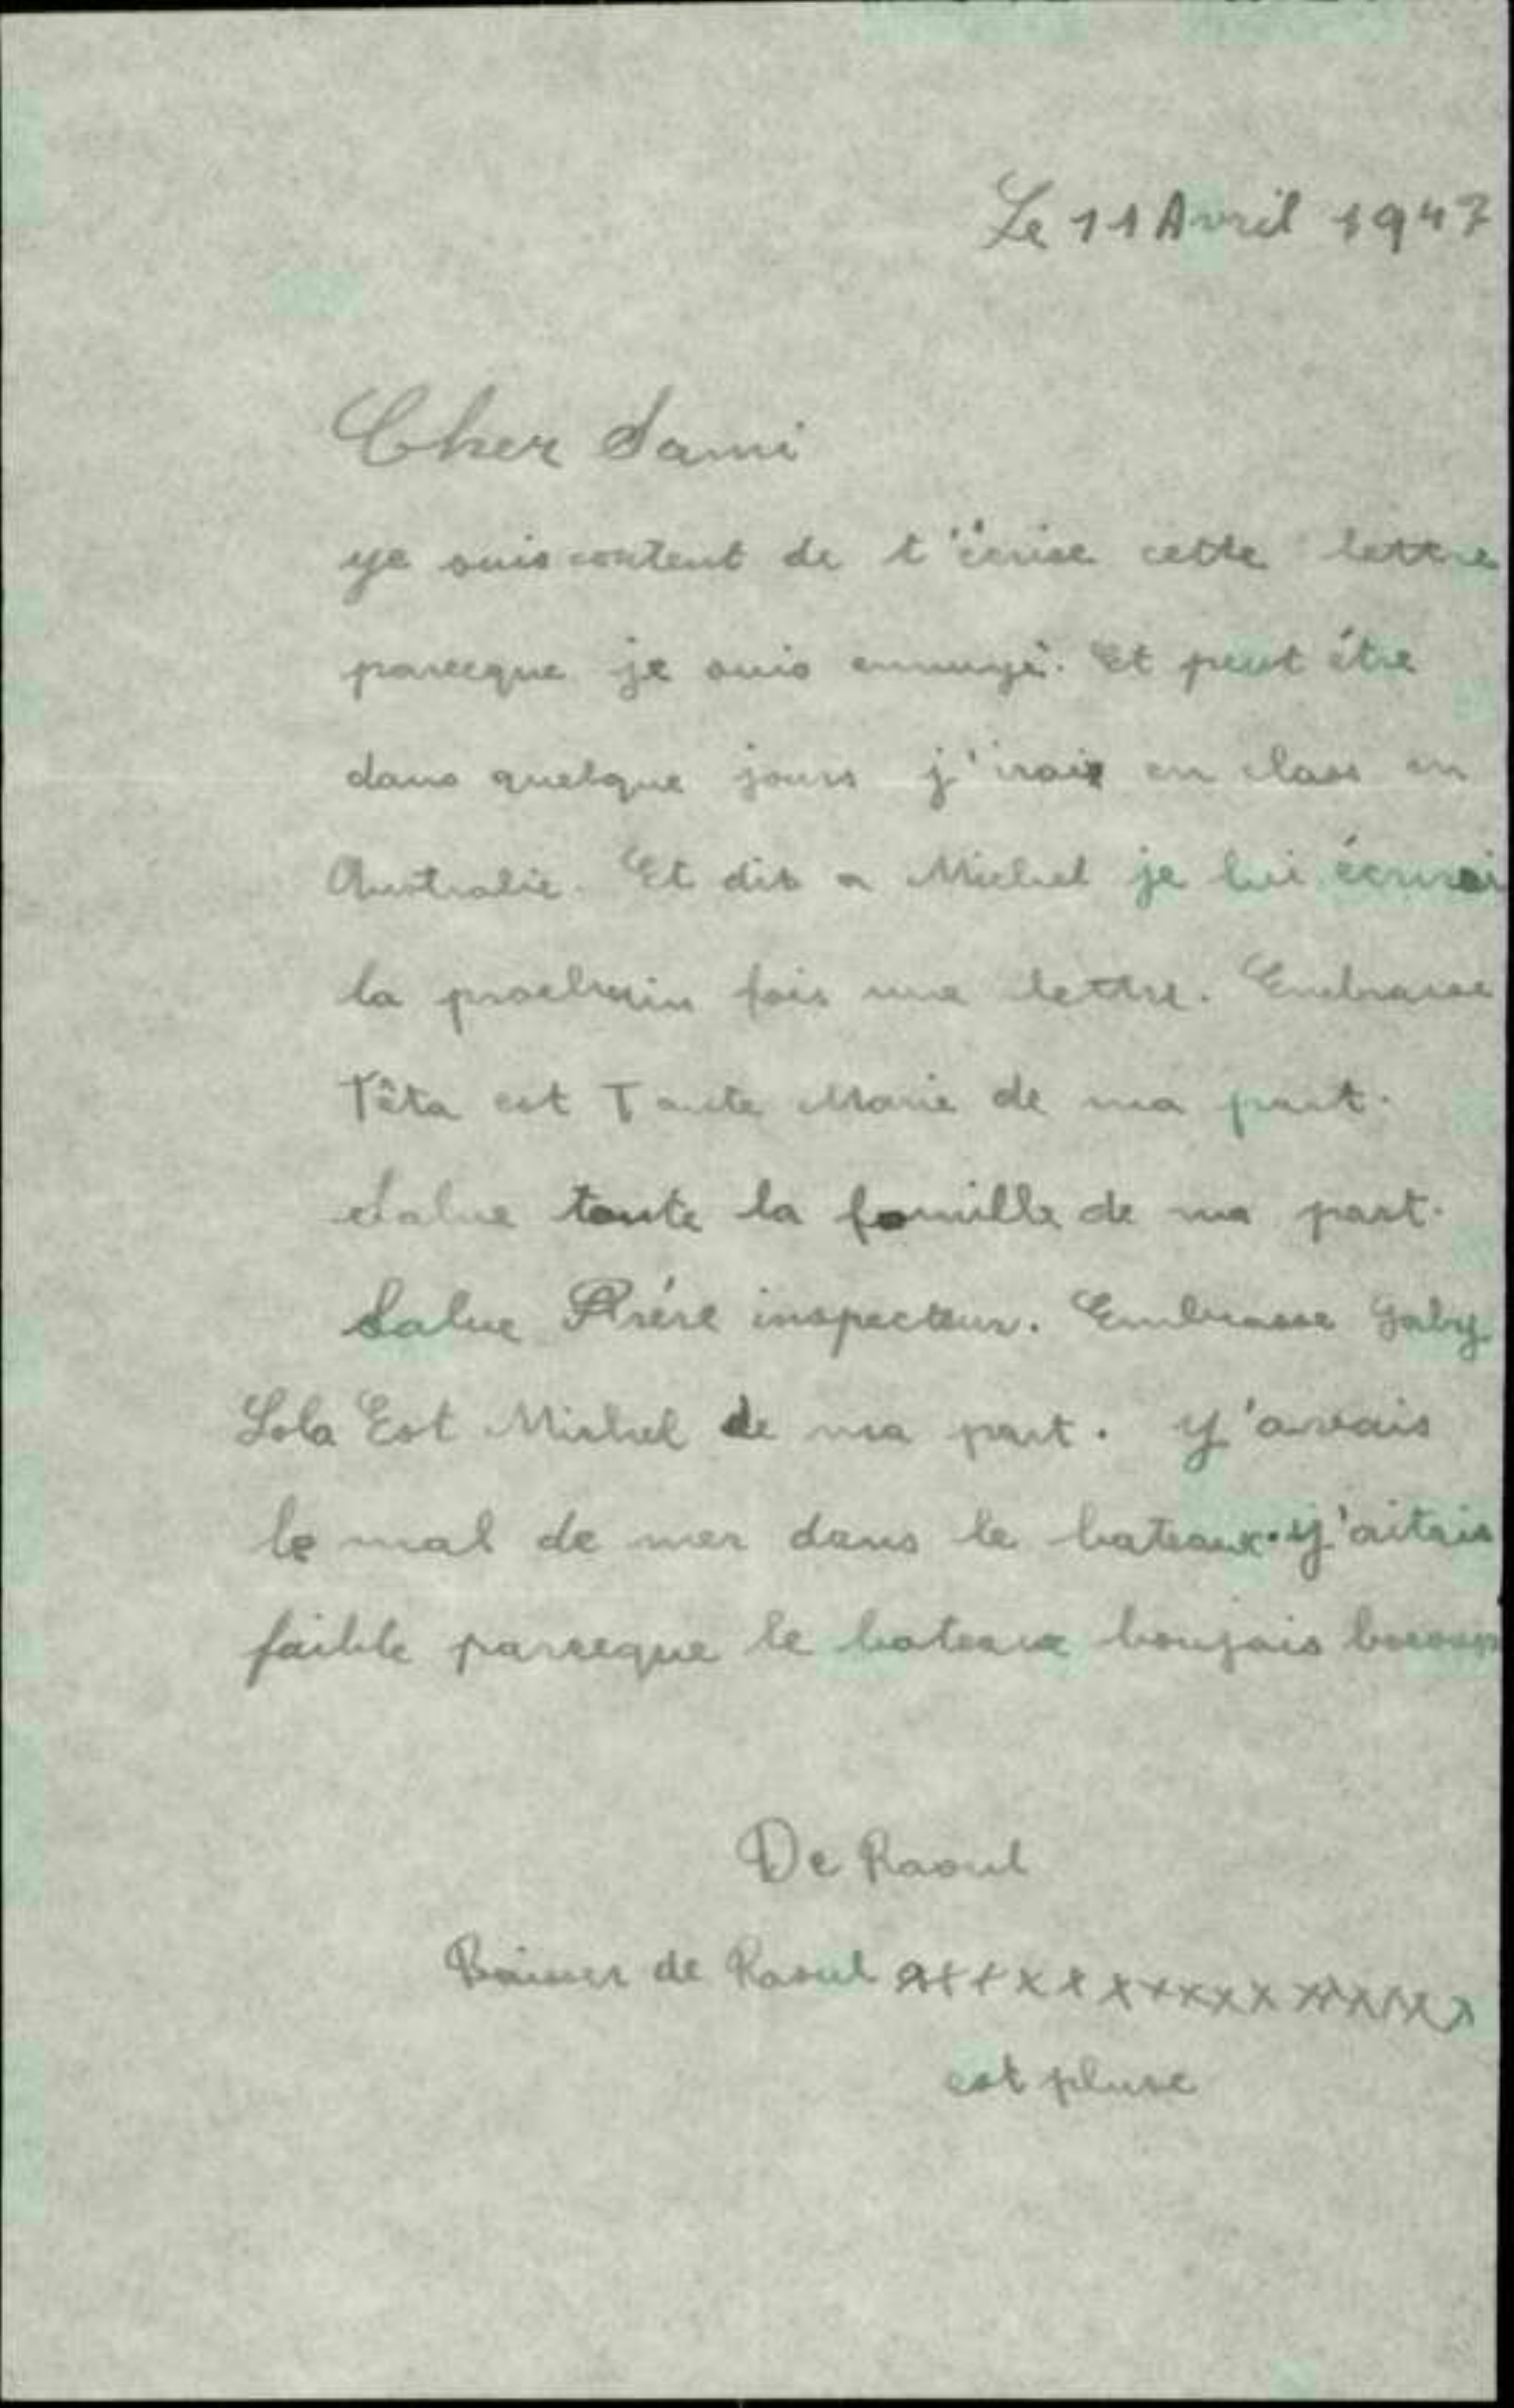 Le 11 Avril 1947
Cher Sami
ye suis content de t'écrise cette lettre
parceque je suis ennuyé. Et peut être
dans quelque jours j'irais en class en
Australie. Et dit a Michel je lui écrirai
la prochain fois une lettre. Embrasse
Têta est Tante Marie de ma part.
Salue toute la famille de ma part.
Salue Frére inspecteur. Embrasse Gaby
Lola Est Michel de ma part. y'avais
le mal de mer dans le bateaux. y'aitais
faible parceque le bateaux boujais
De Raoul
Baiser de Raoul
est pluse